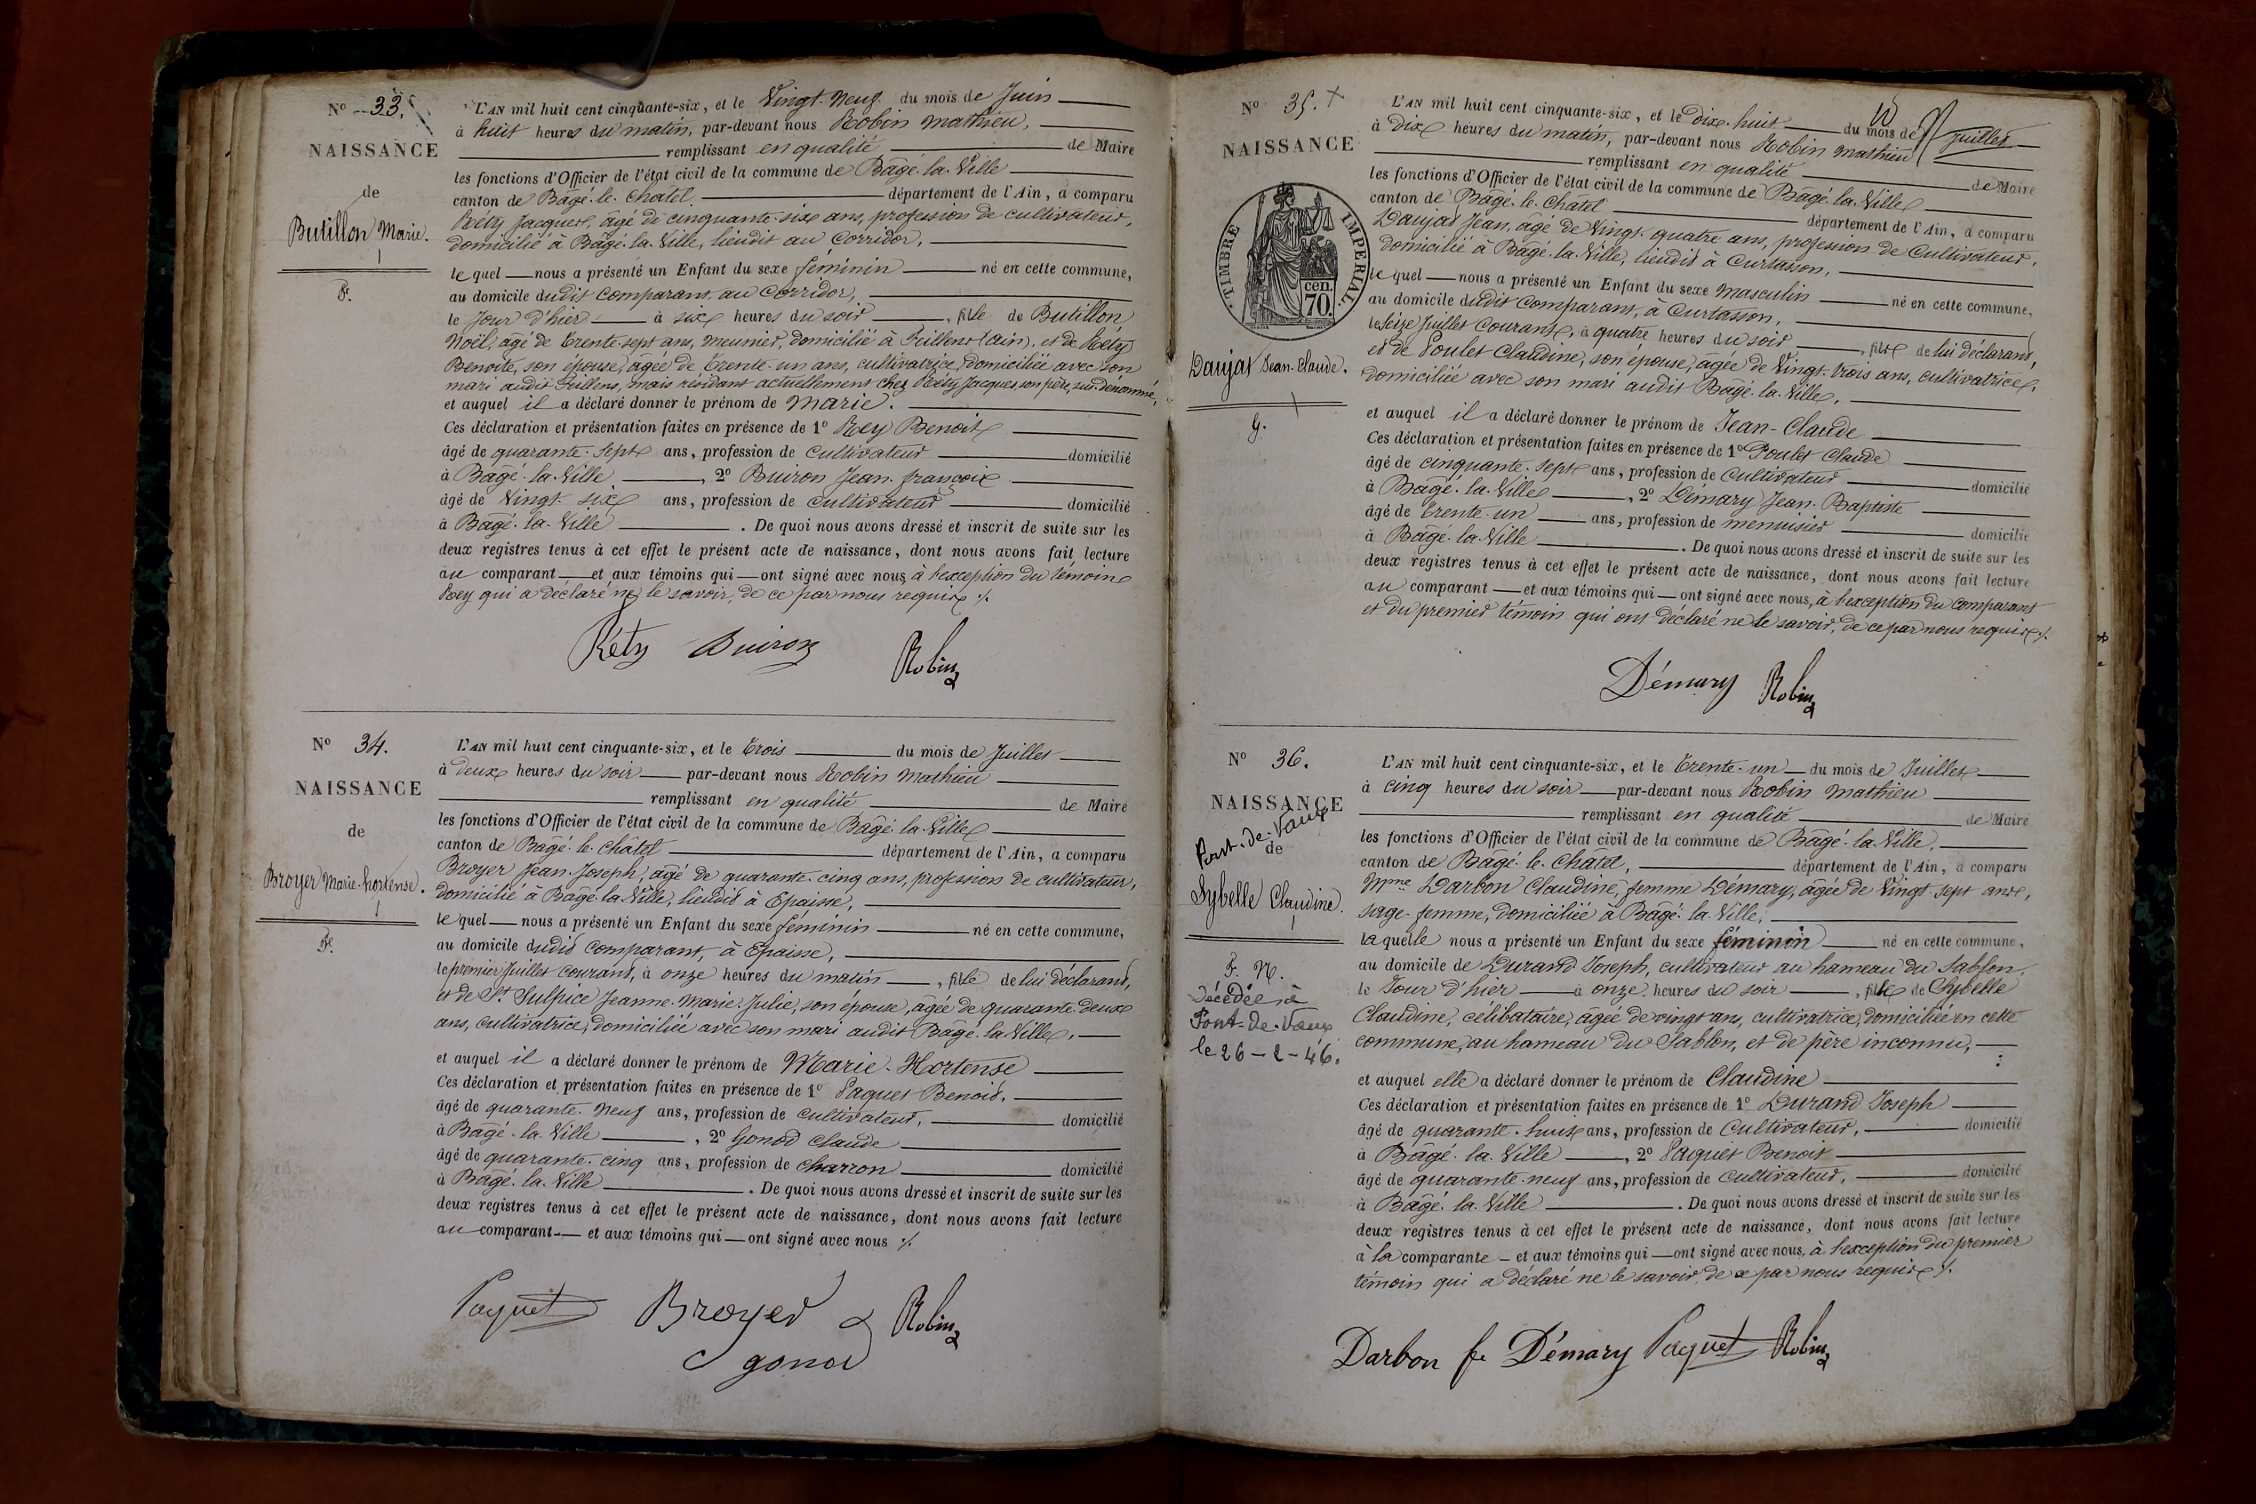 Nº 33.
NAISSANCE
de
Butillon Marie.
F.
L'AN mil huit cent cinquante-six, et le Vingt-Neuf du mois de Juin
à huit heures du matin, par-devant nous Robin Mathieu,
remplissant en qualité de Maire
les fonctions d'Officier de l'état civil de la commune de Bâgé-la-Ville
canton de Bâgé-le-Châtel, département de l'Ain, a comparu
Réty Jacques, âgé de cinquante-six ans, profession de cultivateur,
domicilié à Bâgé-la-Ville, lieudit au Corridor,
lequel nous a présenté un Enfant du sexe féminin né en cette commune,
au domicile dudit comparant, au Corridor,
le Jour d'hier à six heures du soir, fille de Butillon
Noël, âgé de trente-sept ans, meunier, domicilié à Feillens (Ain), et de Réty
Benoîte, son épouse, âgée de trente-un ans, cultivatrice, domiciliée avec son
mari audit Feillens, mais résidant actuellement chez Réty Jacques, son père, sus-dénommé,
et auquel il a déclaré donner le prénom de Marie.
Ces déclaration et présentation faites en présence de 1º Rey Benoit
âgé de quarante-sept ans, profession de cultivateur domicilié
à Bâgé-la-Ville, 2º Buiron Jean-françois
âgé de Vingt-six ans, profession de cultivateur domicilié
à Bâgé-la-Ville. De quoi nous avons dressé et inscrit de suite sur les
deux registres tenus à cet effet le présent acte de naissance, dont nous avons fait lecture
au comparant et aux témoins qui ont signé avec nous, à l'exception du témoin
Rey qui a déclaré ne le savoir, de ce par nous requis ./.
Réty Buiron Robin
Nº 34.
NAISSANCE
de
Broyer Marie-hortense.
F.
L'AN mil huit cent cinquante-six, et le trois du mois de Juillet
à deux heures du soir par-devant nous Robin Mathieu
remplissant en qualité de Maire
les fonctions d'Officier de l'état civil de la commune de Bâgé-la-Ville
canton de Bâgé-le-Châtel département de l'Ain, a comparu
Broyer Jean-Joseph, âgé de quarante-cinq ans, profession de cultivateur,
domicilié à Bâgé-la-Ville, lieudit à Epaisse,
lequel nous a présenté un Enfant du sexe féminin né en cette commune,
au domicile dudit comparant, à Epaisse,
le premier Juillet courant, à onze heures du matin, fille de lui déclarant,
et de St. Sulpice Jeanne-Marie-Julie, son épouse, âgée de quarante-deux
ans, cultivatrice, domiciliée avec son mari audit Bâgé-la-Ville,
et auquel il a déclaré donner le prénom de Marie-Hortense
Ces déclaration et présentation faites en présence de 1º Paquet Benoit,
âgé de quarante-neuf ans, profession de cultivateur, domicilié
à Bâgé-la-Ville, 2º Gonod Claude
âgé de quarante-cinq ans, profession de charron domicilié
à Bâgé-la-Ville. De quoi nous avons dressé et inscrit de suite sur les
deux registres tenus à cet effet le présent acte de naissance, dont nous avons fait lecture
au comparant et aux témoins qui ont signé avec nous ./.
Paquet Broyer Robin
gonod
Nº 35. +
NAISSANCE
TIMBRE IMPERIAL.
cen.
70.
Daujat Jean-Claude.
G.
L'AN mil huit cent cinquante-six, et le Dix-huit du mois de Juillet
à Dix heures du matin, par-devant nous Robin Mathieu
remplissant en qualité de Maire
les fonctions d'Officier de l'état civil de la commune de Bâgé-la-Ville
canton de Bâgé-le-Châtel département de l'Ain, a comparu
Daujat Jean, âgé de Vingt-quatre ans, profession de Cultivateur,
domicilié à Bâgé-la-Ville, lieudit à Curtasson,
lequel nous a présenté un Enfant du sexe Masculin né en cette commune,
au domicile dudit comparant, à Curtasson,
le Seize Juillet Courant, à quatre heures du soir, fils de lui déclarant,
et de Poulet Claudine, son épouse, âgée de Vingt-trois ans, cultivatrice,
domiciliée avec son mari audit Bâgé-la-Ville,
et auquel il a déclaré donner le prénom de Jean-Claude
Ces déclaration et présentation faites en présence de 1º Poulet Claude
âgé de cinquante-sept ans, profession de Cultivateur domicilié
à Bâgé-la-Ville, 2º Démary Jean-Baptiste
âgé de trente-un ans, profession de menuisier domicilié
à Bâgé-la-Ville. De quoi nous avons dressé et inscrit de suite sur les
deux registres tenus à cet effet le présent acte de naissance, dont nous avons fait lecture
au comparant et aux témoins qui ont signé avec nous, à l'exception du comparant
et du premier témoin qui ont déclaré ne le savoir, de ce par nous requis ./.
Démary Robin
Nº 36.
NAISSANCE
Pont-de-Vaux
de
Sybelle Claudine.
F. N.
Décédée à
Pont-de-Vaux
le 26-2-46.
L'AN mil huit cent cinquante-six, et le trente-un du mois de Juillet
à cinq heures du soir par-devant nous Robin Mathieu
remplissant en qualité de Maire
les fonctions d'Officier de l'état civil de la commune de Bâgé-la-Ville,
canton de Bâgé-le-Châtel, département de l'Ain, a comparu
Mme Darbon Claudine, femme Démary, âgée de Vingt-sept ans,
sage-femme, domiciliée à Bâgé-la-Ville,
laquelle nous a présenté un Enfant du sexe féminin né en cette commune,
au domicile de Durand Joseph, cultivateur au hameau du Sablon,
le Jour d'hier à onze heures du soir, fille de Sybelle
Claudine, célibataire, âgée de vingt ans, cultivatrice, domiciliée en cette
commune, au hameau du Sablon, et de père inconnu,
et auquel elle a déclaré donner le prénom de Claudine
Ces déclaration et présentation faites en présence de 1º Durand Joseph
âgé de quarante-huit ans, profession de Cultivateur, domicilié
à Bâgé-la-Ville, 2º Paquet Benoit
âgé de quarante-neuf ans, profession de cultivateur, domicilié
à Bâgé-la-Ville. De quoi nous avons dressé et inscrit de suite sur les
deux registres tenus à cet effet le présent acte de naissance, dont nous avons fait lecture
à la comparante et aux témoins qui ont signé avec nous, à l'exception du premier
témoin qui a déclaré ne le savoir, de ce par nous requis ./.
Darbon fe Démary Paquet Robin